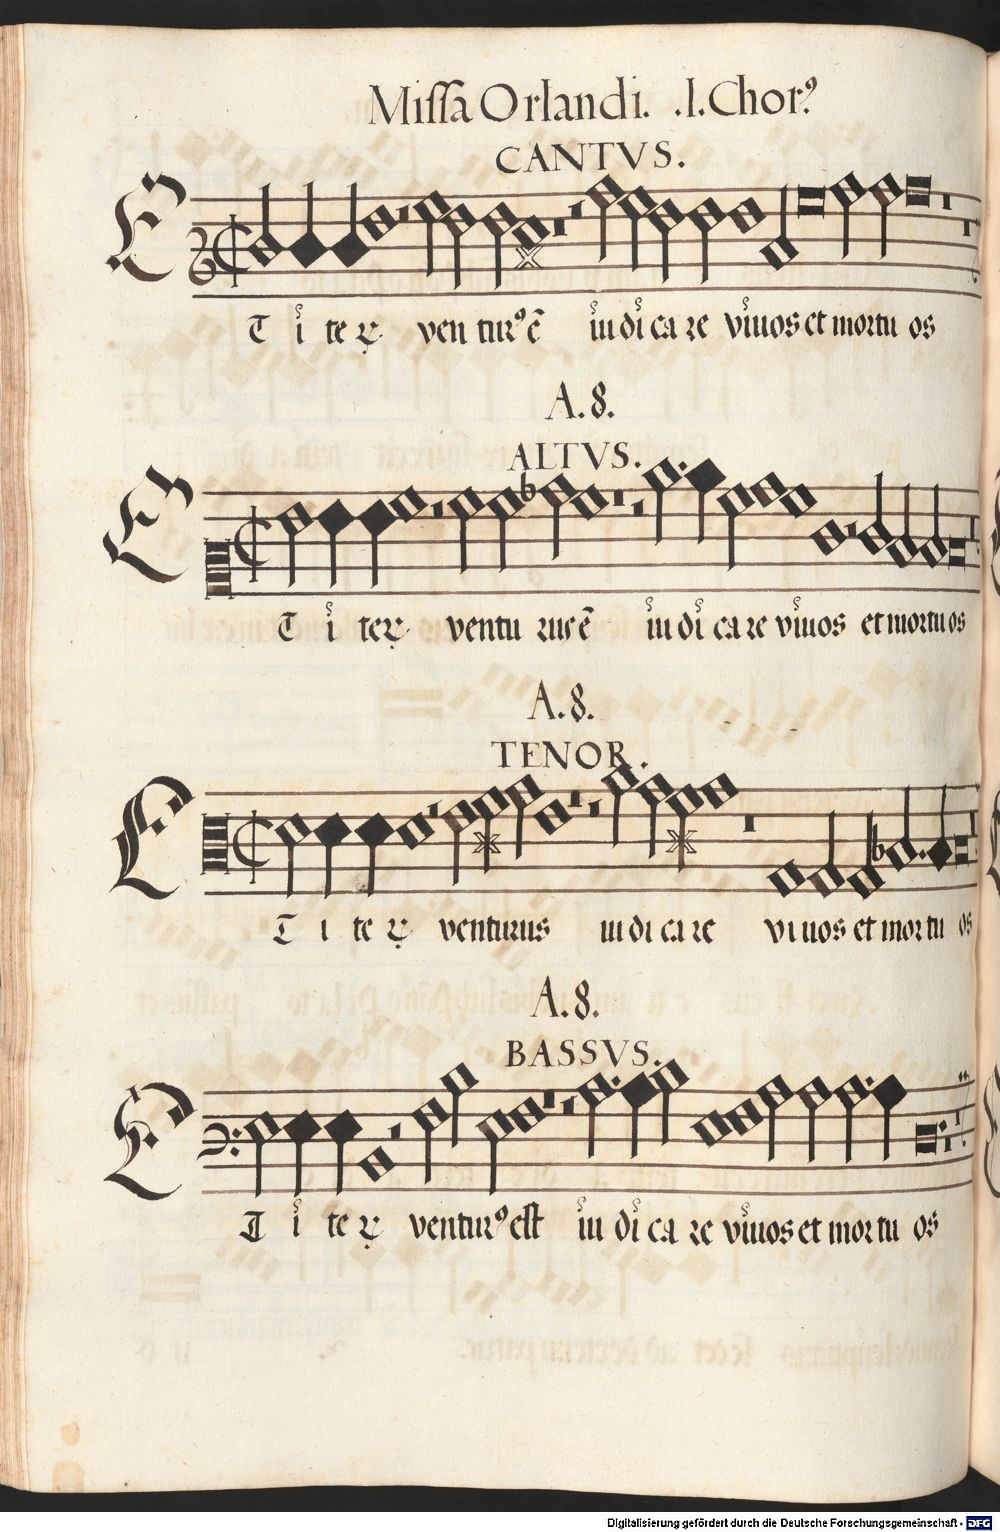 Missa Orlandi. .I. Chor⁹
CANTVS.
ET i teꝝ ventur⁹ ē iudicare viuos et mortuos
A. 8.
ALTVS.
ET i teꝝ venturus ē iudicare viuos et mortuos
A. 8.
TENOR.
ET i teꝝ venturus iudicare viuos et mortuos
A. 8.
BASSVS.
ET i teꝝ ventur⁹ est iudicare viuos et mortuos
Digitalisierung gefördert durch die Deutsche Forschungsgemeinschaft - DFG